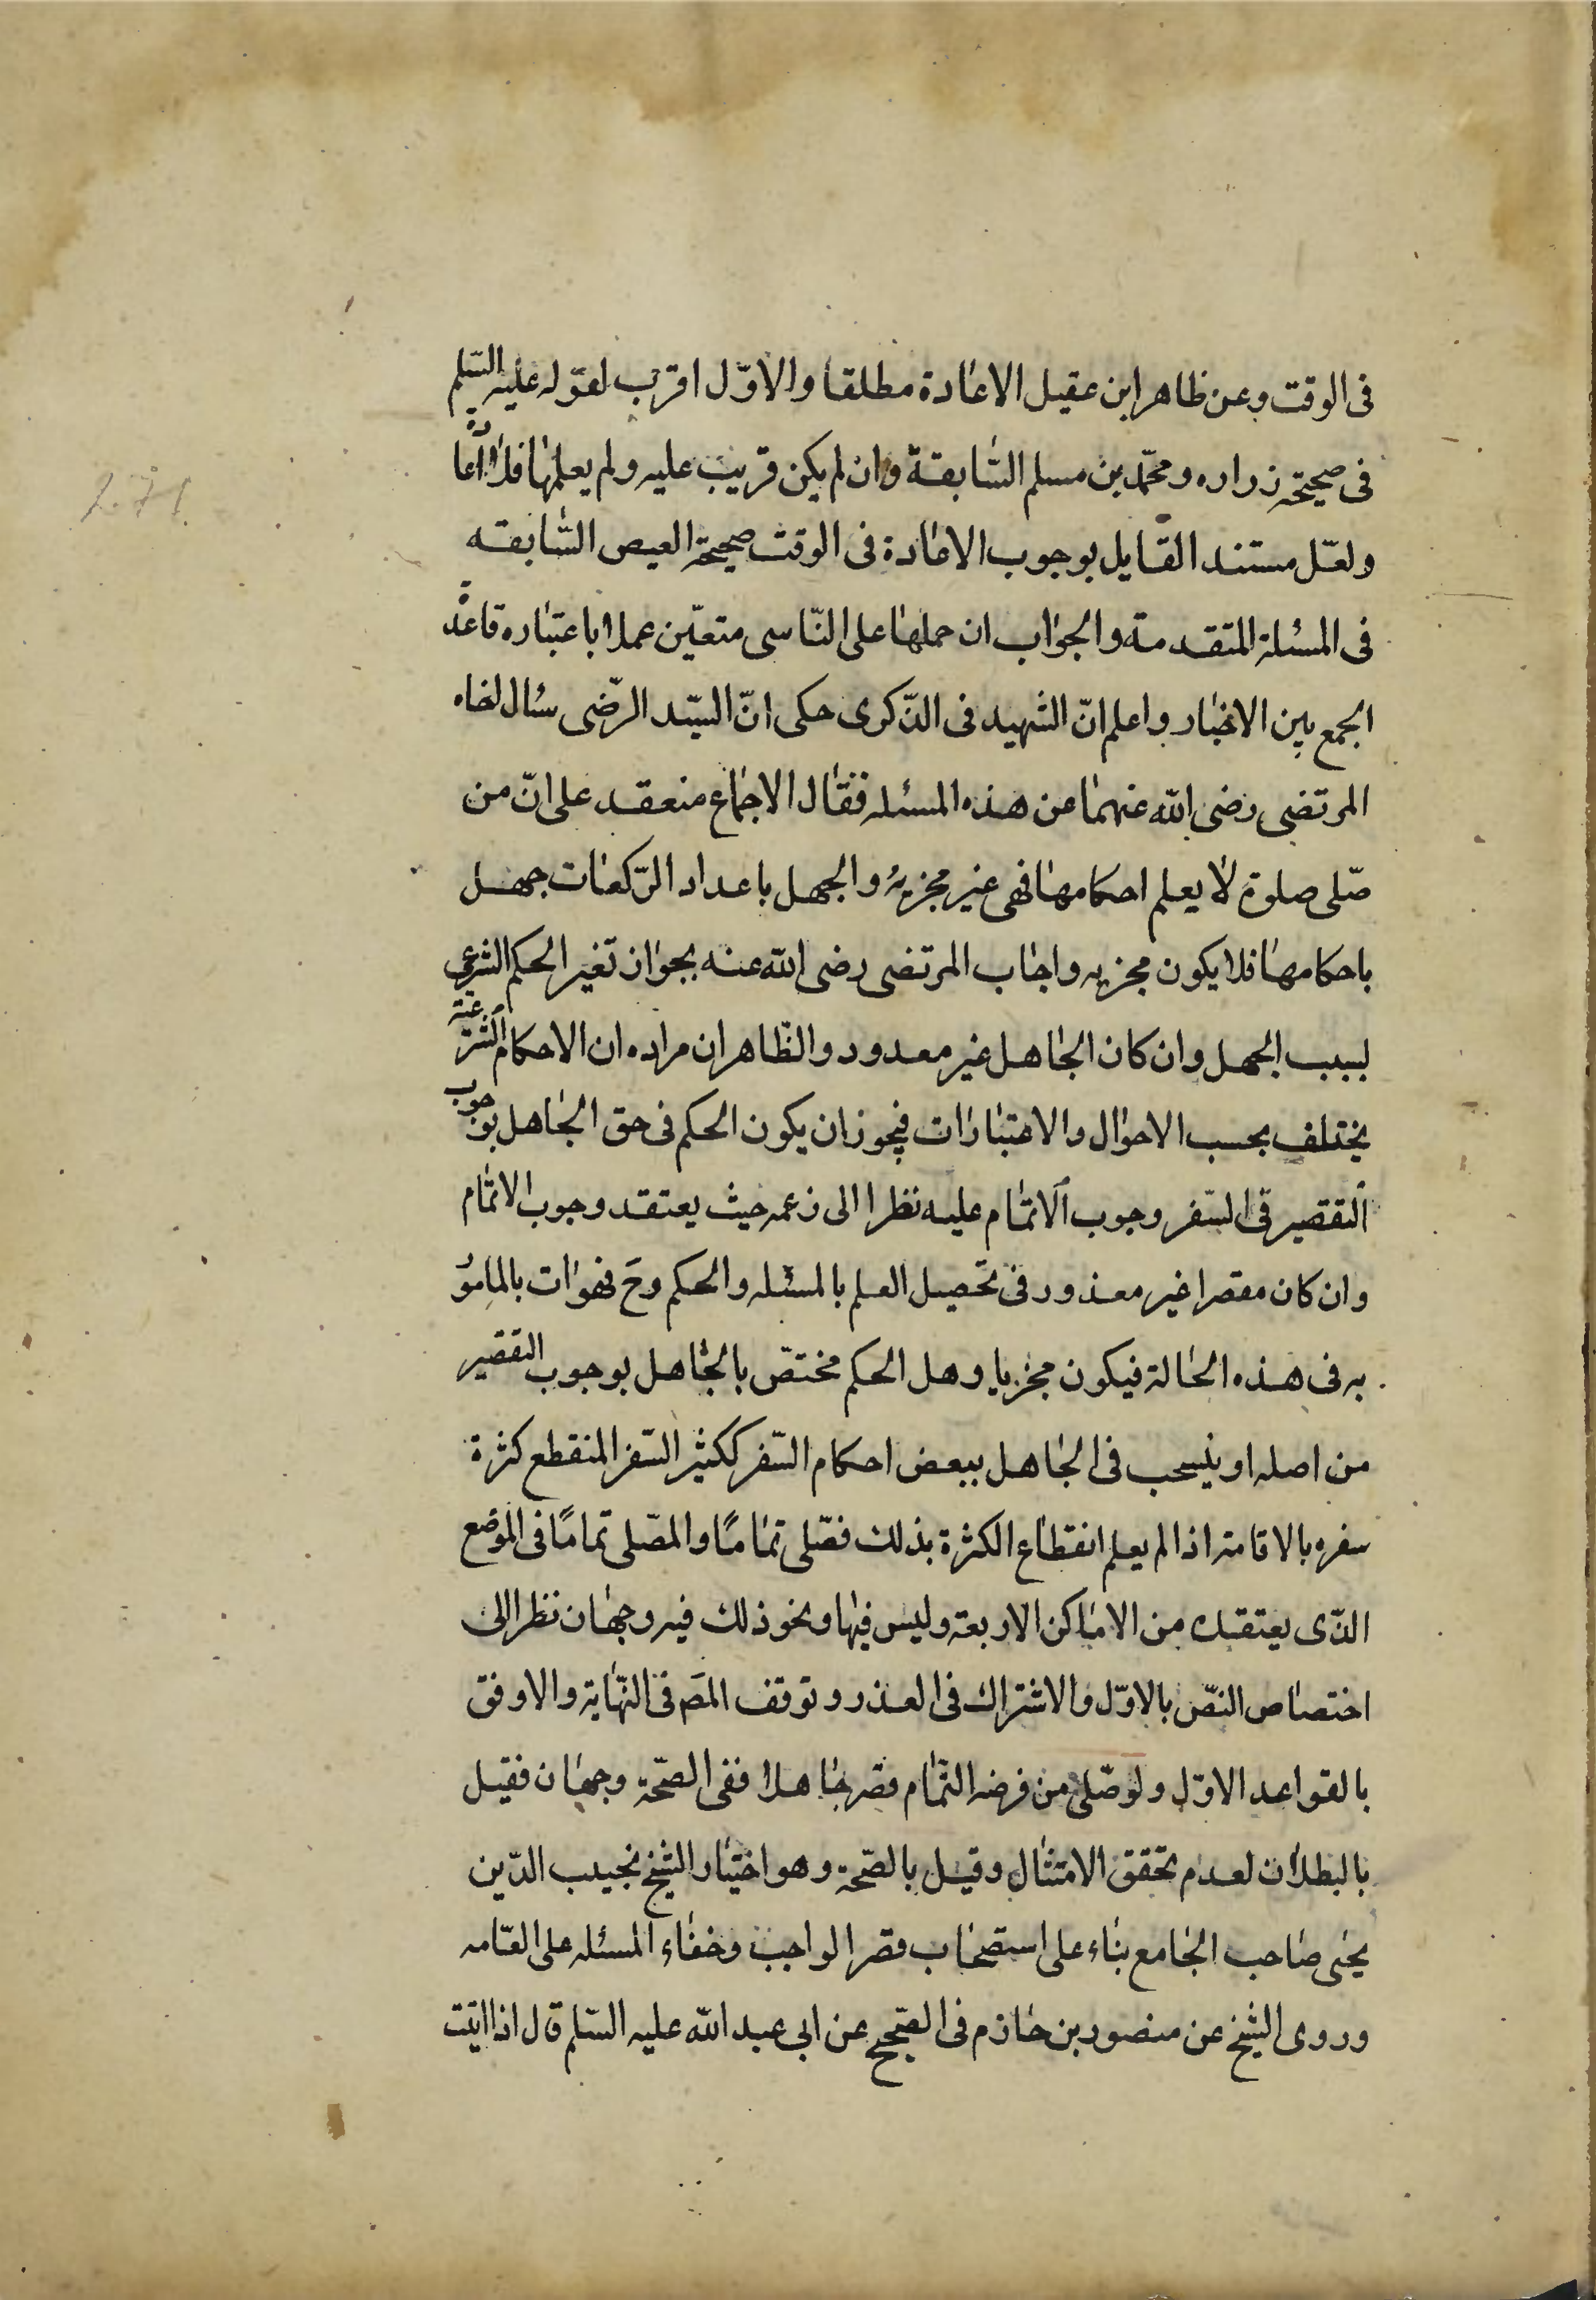 فى الوقت وعن ظاهر ابن عقيل الاعادة مطلقا والاوّل اقرب لقوله عليه السّلم
فى صحيحة زراره ومحمّد بن مسلم السّابقة وان لم يكن قريت عليه ولم يعلمها فلا اعادة
ولعّل مستند القايل بوجوب الاعادة فى الوقت صحيحة العيص السّابقه
فى المسئلة المتقدمة والجواب ان حملها على النّاسى متعيّن عملا باعتباره قاعدة
الجمع بين الاخبار واعلم انّ الشهيد فى الذّكرى حكى انّ السيّد الرّضى سئال لخاه
المرتضى رضى الله عنهما عن هذه المسئله فقال الاجماع منعقد على انّ من
صّلى صلوة لا يعلم احكامها فهى غير مجزية والجهل باعداد الرّكعات جهل
باحكامها فلا يكون مجزيه واجاب المرتضى رضى الله عنه بجواز تغير الحكم الشرعى
لسبب الجهل وان كان الجاهل غير معدود والظّاهر ان مراده ان الاحكام الشرعيّة
يختلف بحسب الاحوال والاعتبارات فيجوز ان يكون الحكم فى حق الجاهل بوجوب
التقصير فى السّفر وجوب الاتمام عليه نظرا الى زعمه حيث يعتقد وجوب الاتمام
وان كان مقصرا غير معذور فى تحصيل العلم بالمسئله والحكم وح فهوات بالمامور
به فى هذه الحالة فيكون مجزيا وهل الحكم مختصّ بالجاهل بوجوب التقصير
من اصله او ينسحب فى الجاهل ببعض احكام السّفر ككثير السّفر المنقطع كثرة
سفره بالاقامة اذا لم يعلم انقطاع الكثرة بذلك فصّلى تمامًا والمصّلى تمامًا فى الموضع
الذّى يعتقده من الاماكن الاربعة وليس فيها ونحو ذلك فيه وجهان نظرا الى
اختصاص النصّ بالاوّل والاشتراك فى العذر وتوقف المصَ فى النّهاية والاوفق
بالقواعد الاوّل ولو صّلى من فرضه التّمام قصر جاهلا ففى الصّحة وجهان فقيل
بالبطلان لعدم تحقق الامتثال وقيل بالصّحة وهو اختيار الشيخ نجيب الدّين
يحيى صاحب الجامع بناء على استصحاب قصر الواجب وخفاء المسئله على العّامه
وروى الشيخ عن منصور بن حازم فى الصّحيح عن ابى عبد الله عليه السّلم قال اذا اتيت